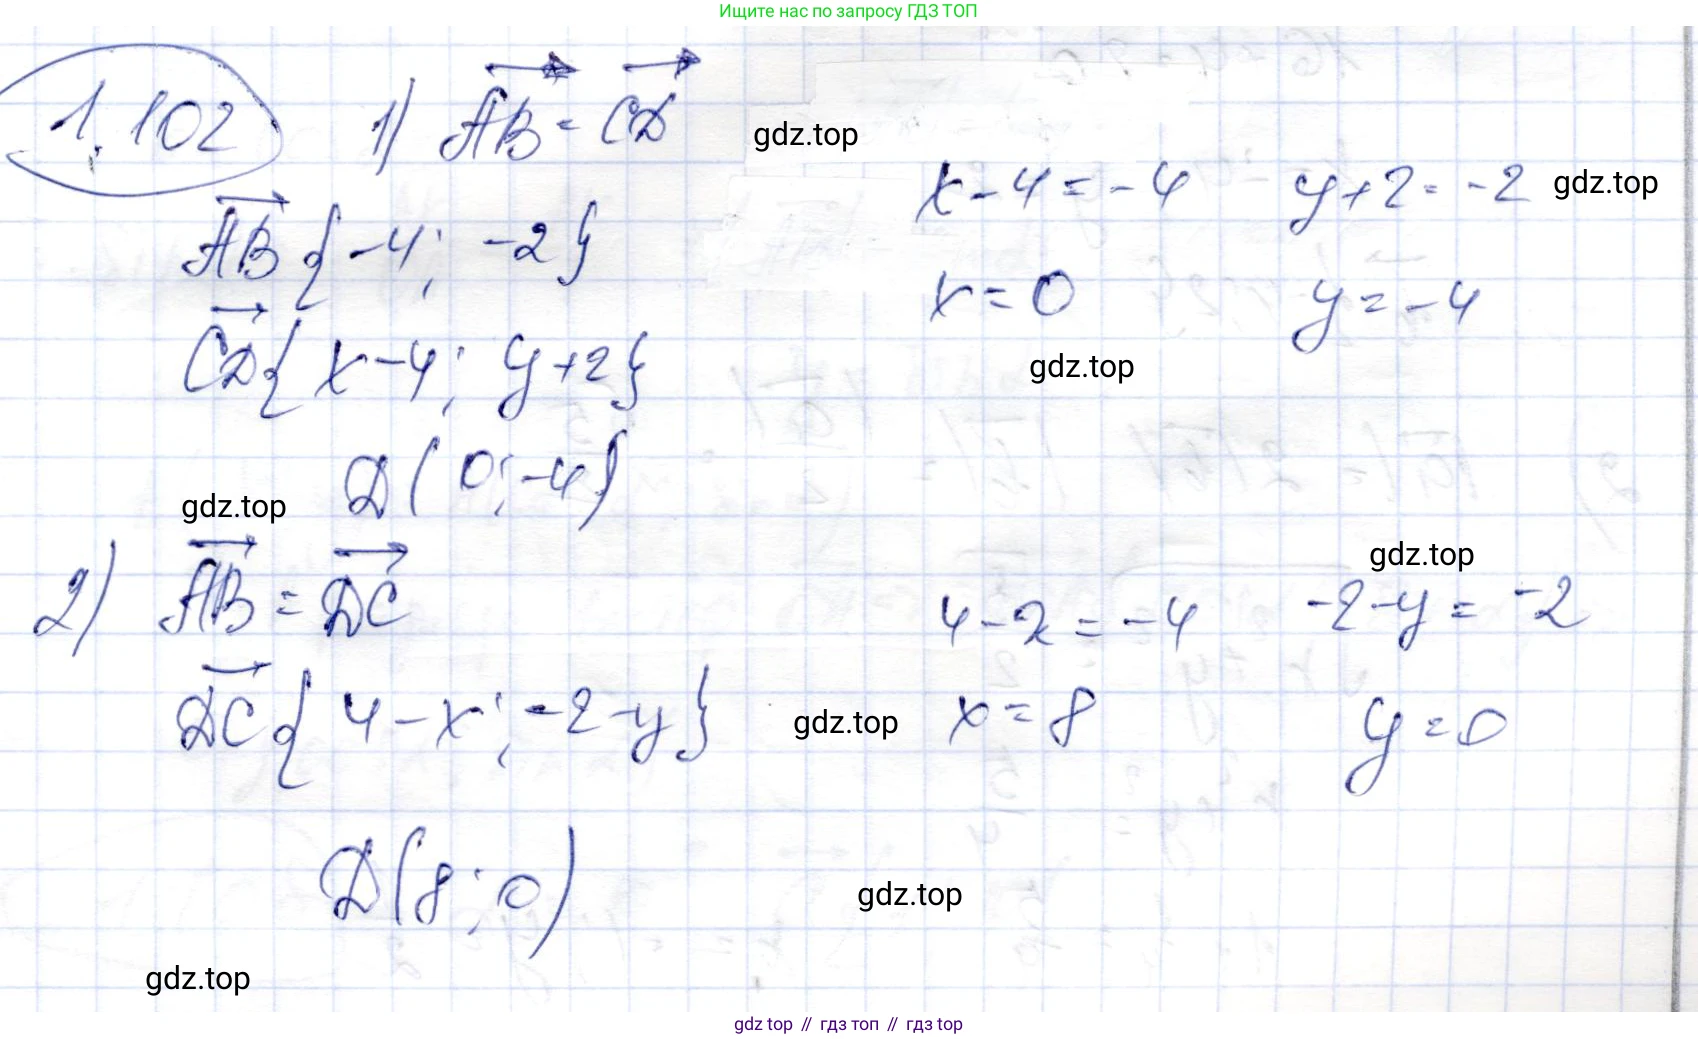 Ищите нас по запросу ГДЗ ТОП
1.102 1) AB = CD
gdz.top
x - 4 = -4 y + 2 = -2 gdz.top
AB {-4; -2}
x = 0 y = -4
CD {x - 4; y + 2}
gdz.top
D(0; -4)
gdz.top
gdz.top
2) AB = DC
4 - x = -4 -2 - y = -2
DC {4 - x; -2 - y}
gdz.top
x = 8 y = 0
D(8; 0)
gdz.top
gdz.top
gdz top // гдз топ // гдз top